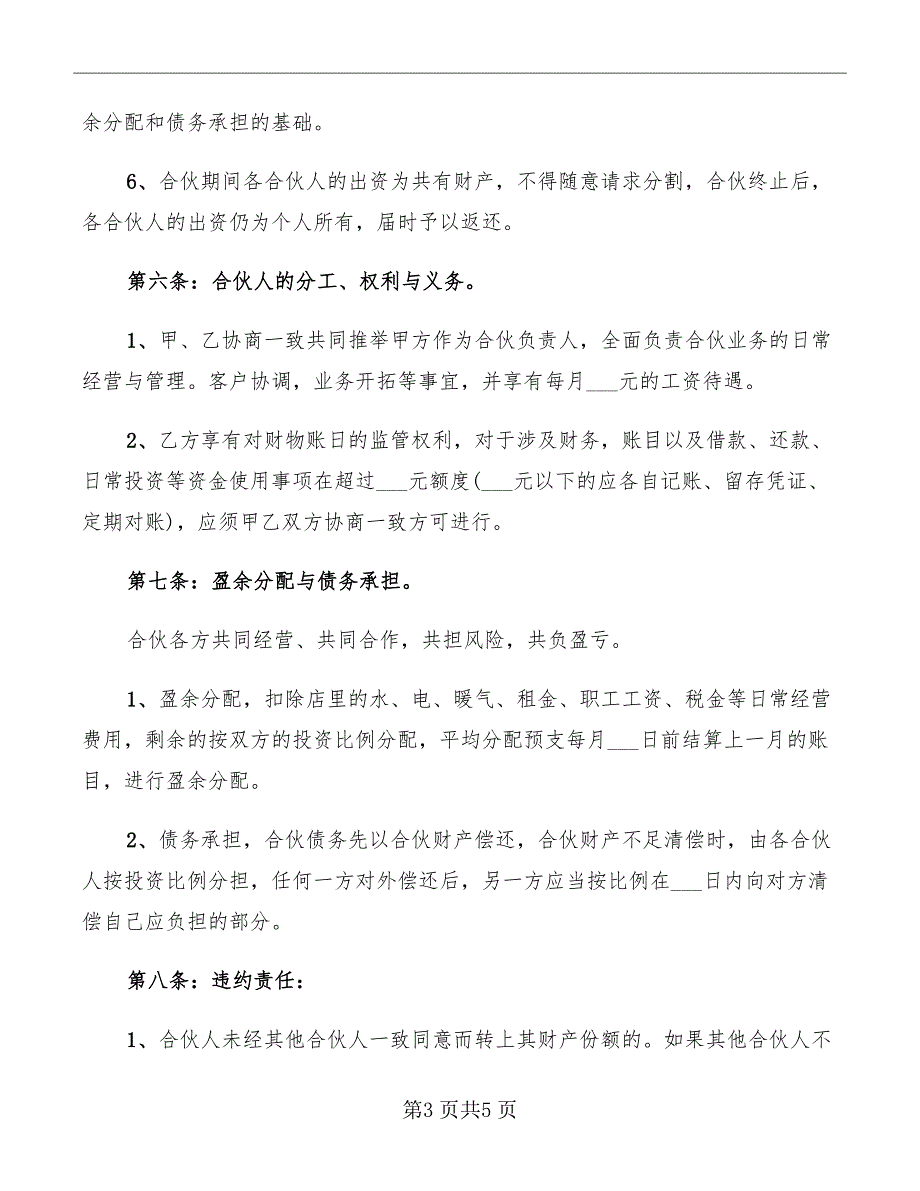 余分配和债务承担的基础。
6、合伙期间各合伙人的出资为共有财产，不得随意请求分割，合伙终止后，
各合伙人的出资仍为个人所有，届时予以返还。
第六条：合伙人的分工、权利与义务。
1、甲、乙协商一致共同推举甲方作为合伙负责人，全面负责合伙业务的日常
经营与管理。客户协调，业务开拓等事宜，并享有每月___元的工资待遇。
2、乙方享有对财物账日的监管权利，对于涉及财务，账目以及借款、还款、
日常投资等资金使用事项在超过___元额度(___元以下的应各自记账、留存凭证、
定期对账)，应须甲乙双方协商一致方可进行。
第七条：盈余分配与债务承担。
合伙各方共同经营、共同合作，共担风险，共负盈亏。
1、盈余分配，扣除店里的水、电、暖气、租金、职工工资、税金等日常经营
费用，剩余的按双方的投资比例分配，平均分配预支每月___日前结算上一月的账
目，进行盈余分配。
2、债务承担，合伙债务先以合伙财产偿还，合伙财产不足清偿时，由各合伙
人按投资比例分担，任何一方对外偿还后，另一方应当按比例在___日内向对方清
偿自己应负担的部分。
第八条：违约责任：
1、合伙人未经其他合伙人一致同意而转上其财产份额的。如果其他合伙人不
第3 页共5 页